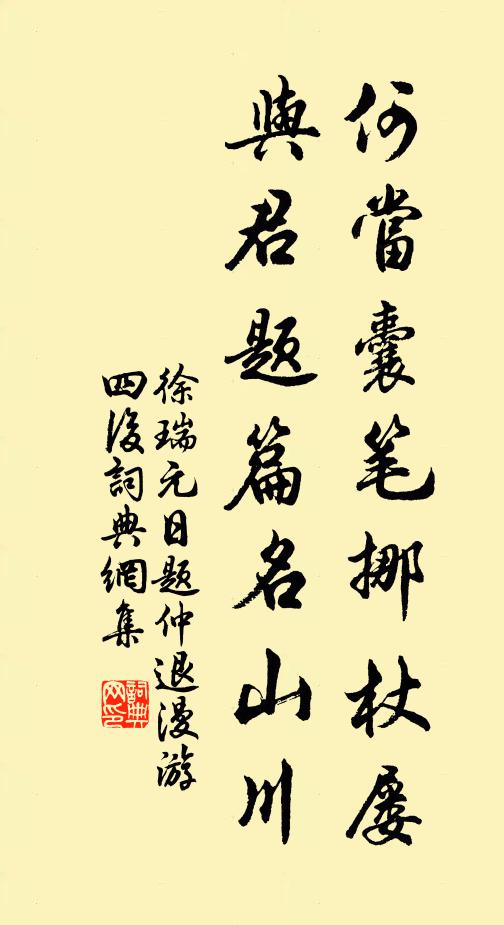 何當囊笔挪杖屡
與君题篇名山川
徐瑞元日题仲退漫游
四後詞典網集
詞典
网印